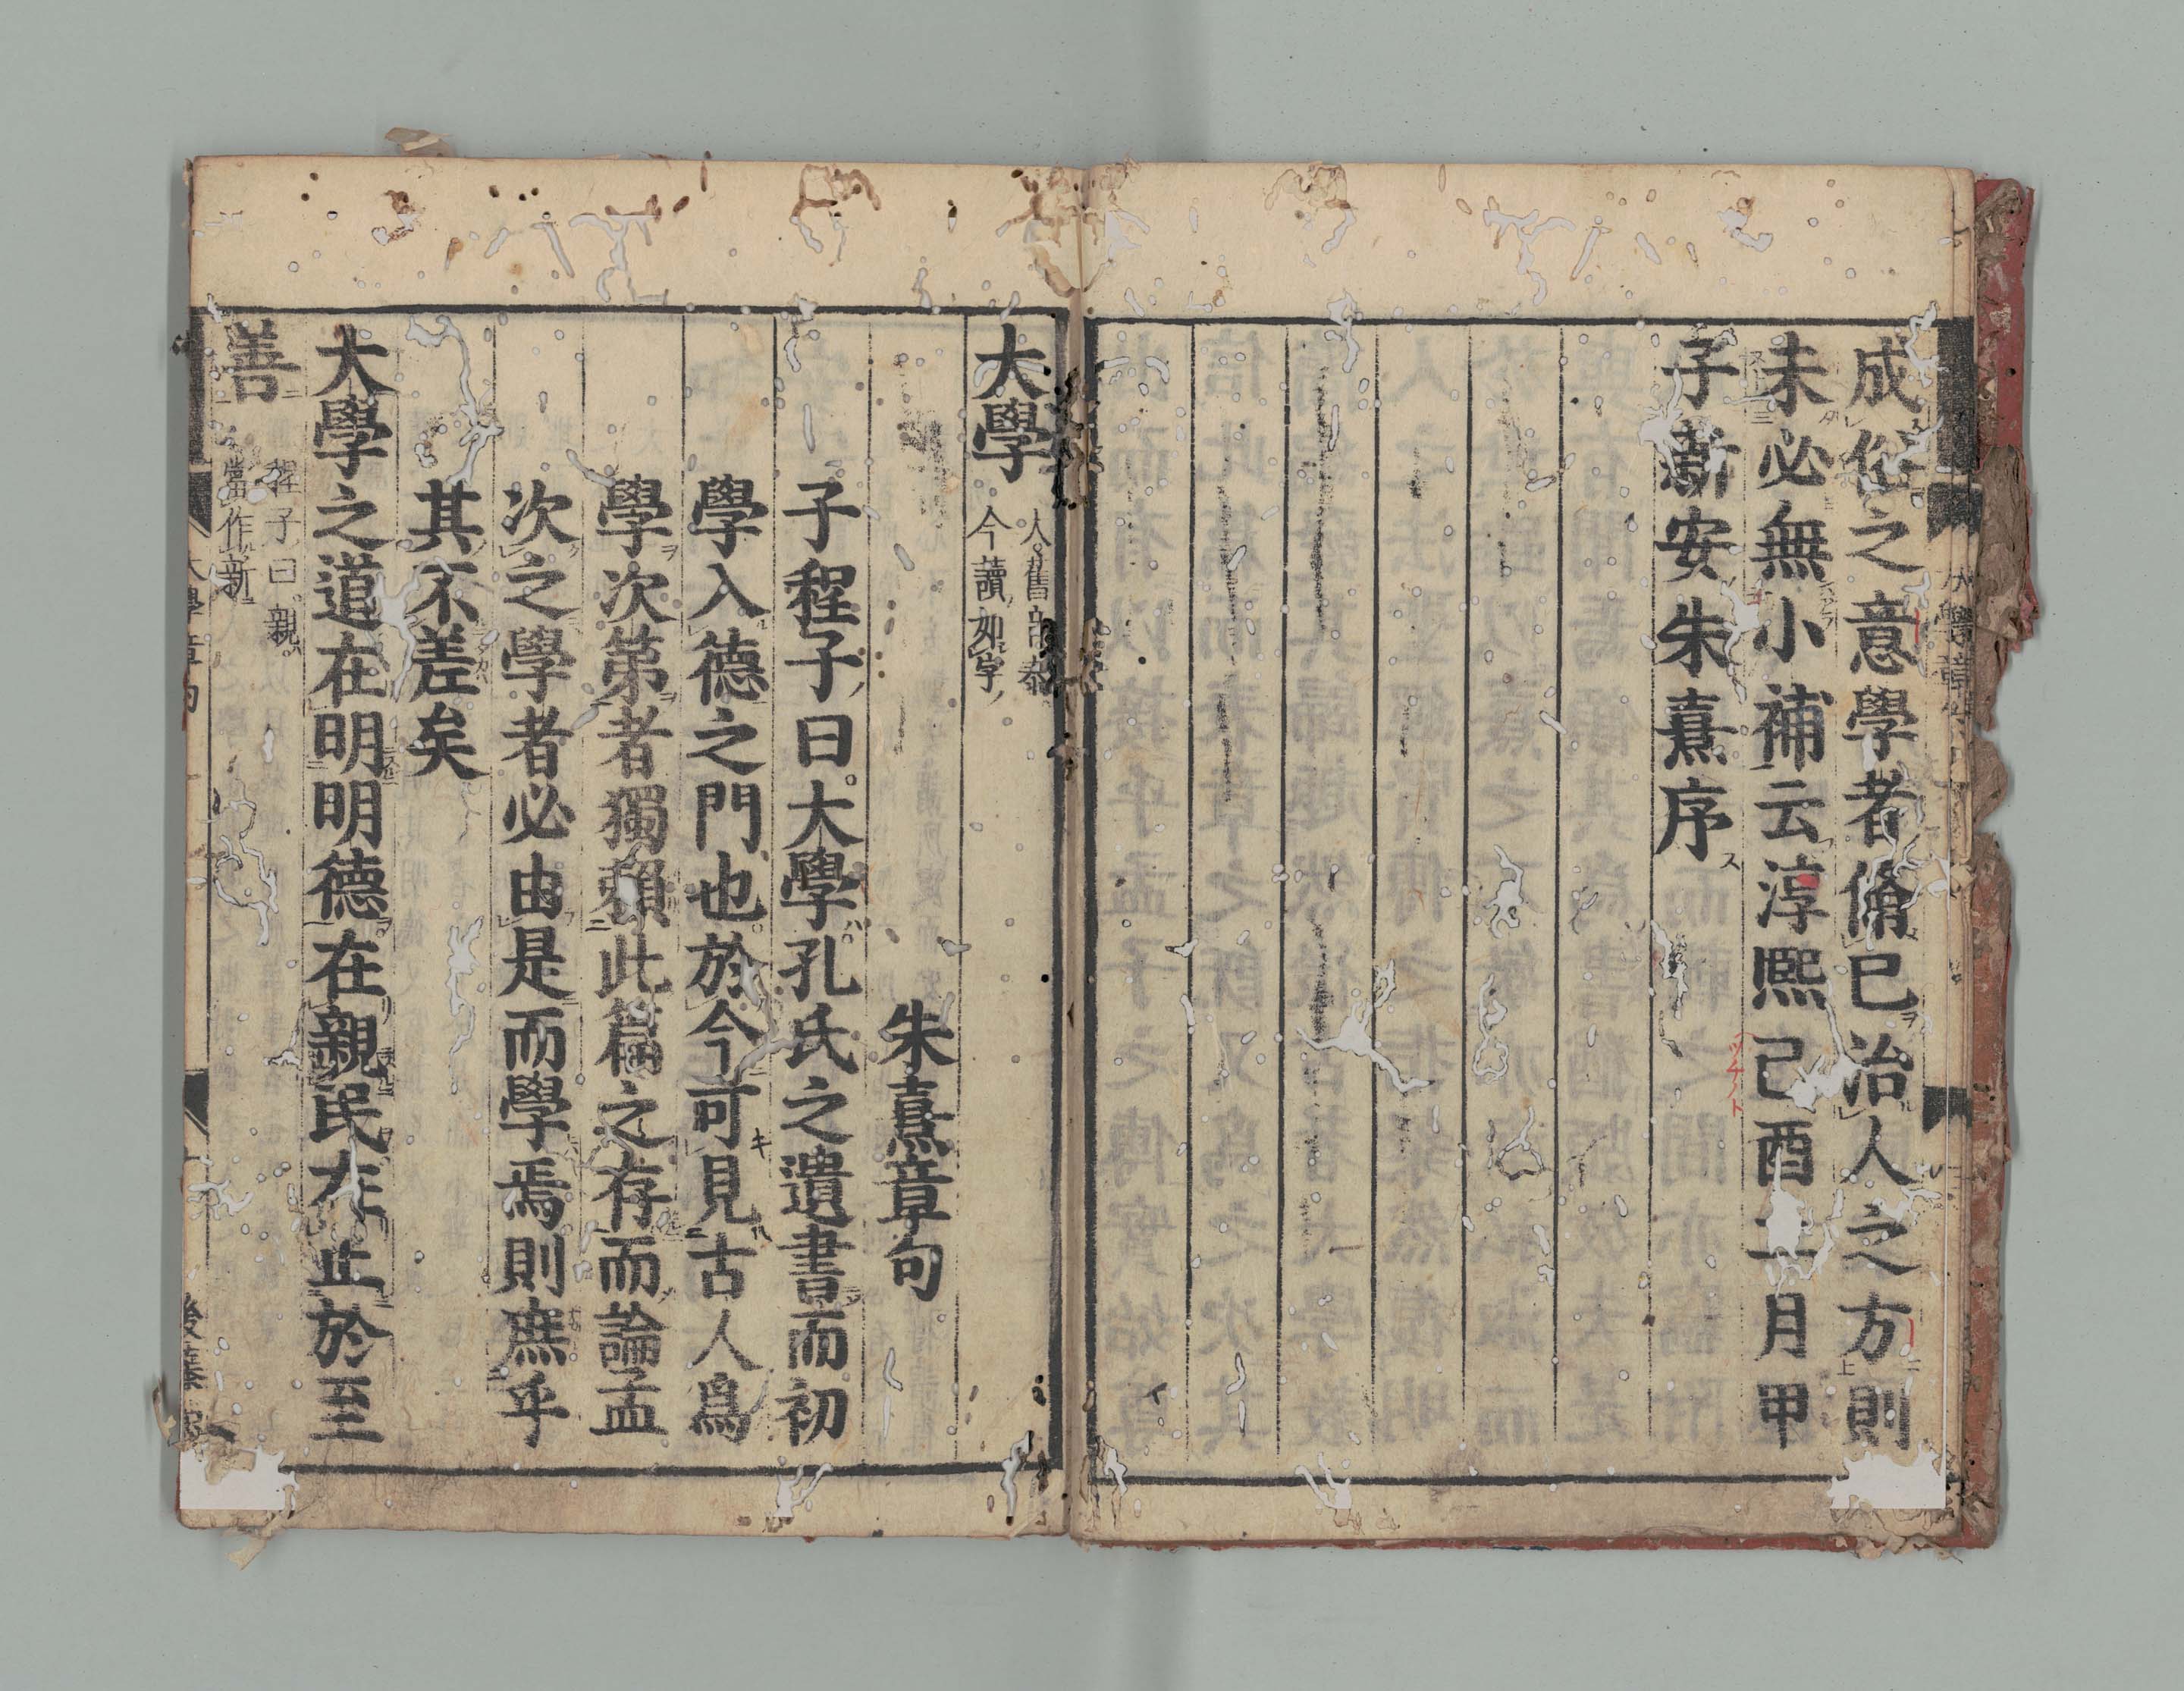 成俗之意學者脩己治人之方則
未必無小補云淳熙己酉二月甲
子新安朱熹序
大學
大舊音泰
今讀如字
朱熹章句
子程子曰大學孔氏之遺書而初
學入德之門也於今可見古人爲
學次第者獨賴此篇之存而論孟
次之學者必由是而學焉則庶乎
其不差矣
大學之道在明明德在親民在止於至
善
程子曰親
當作新
大學章句